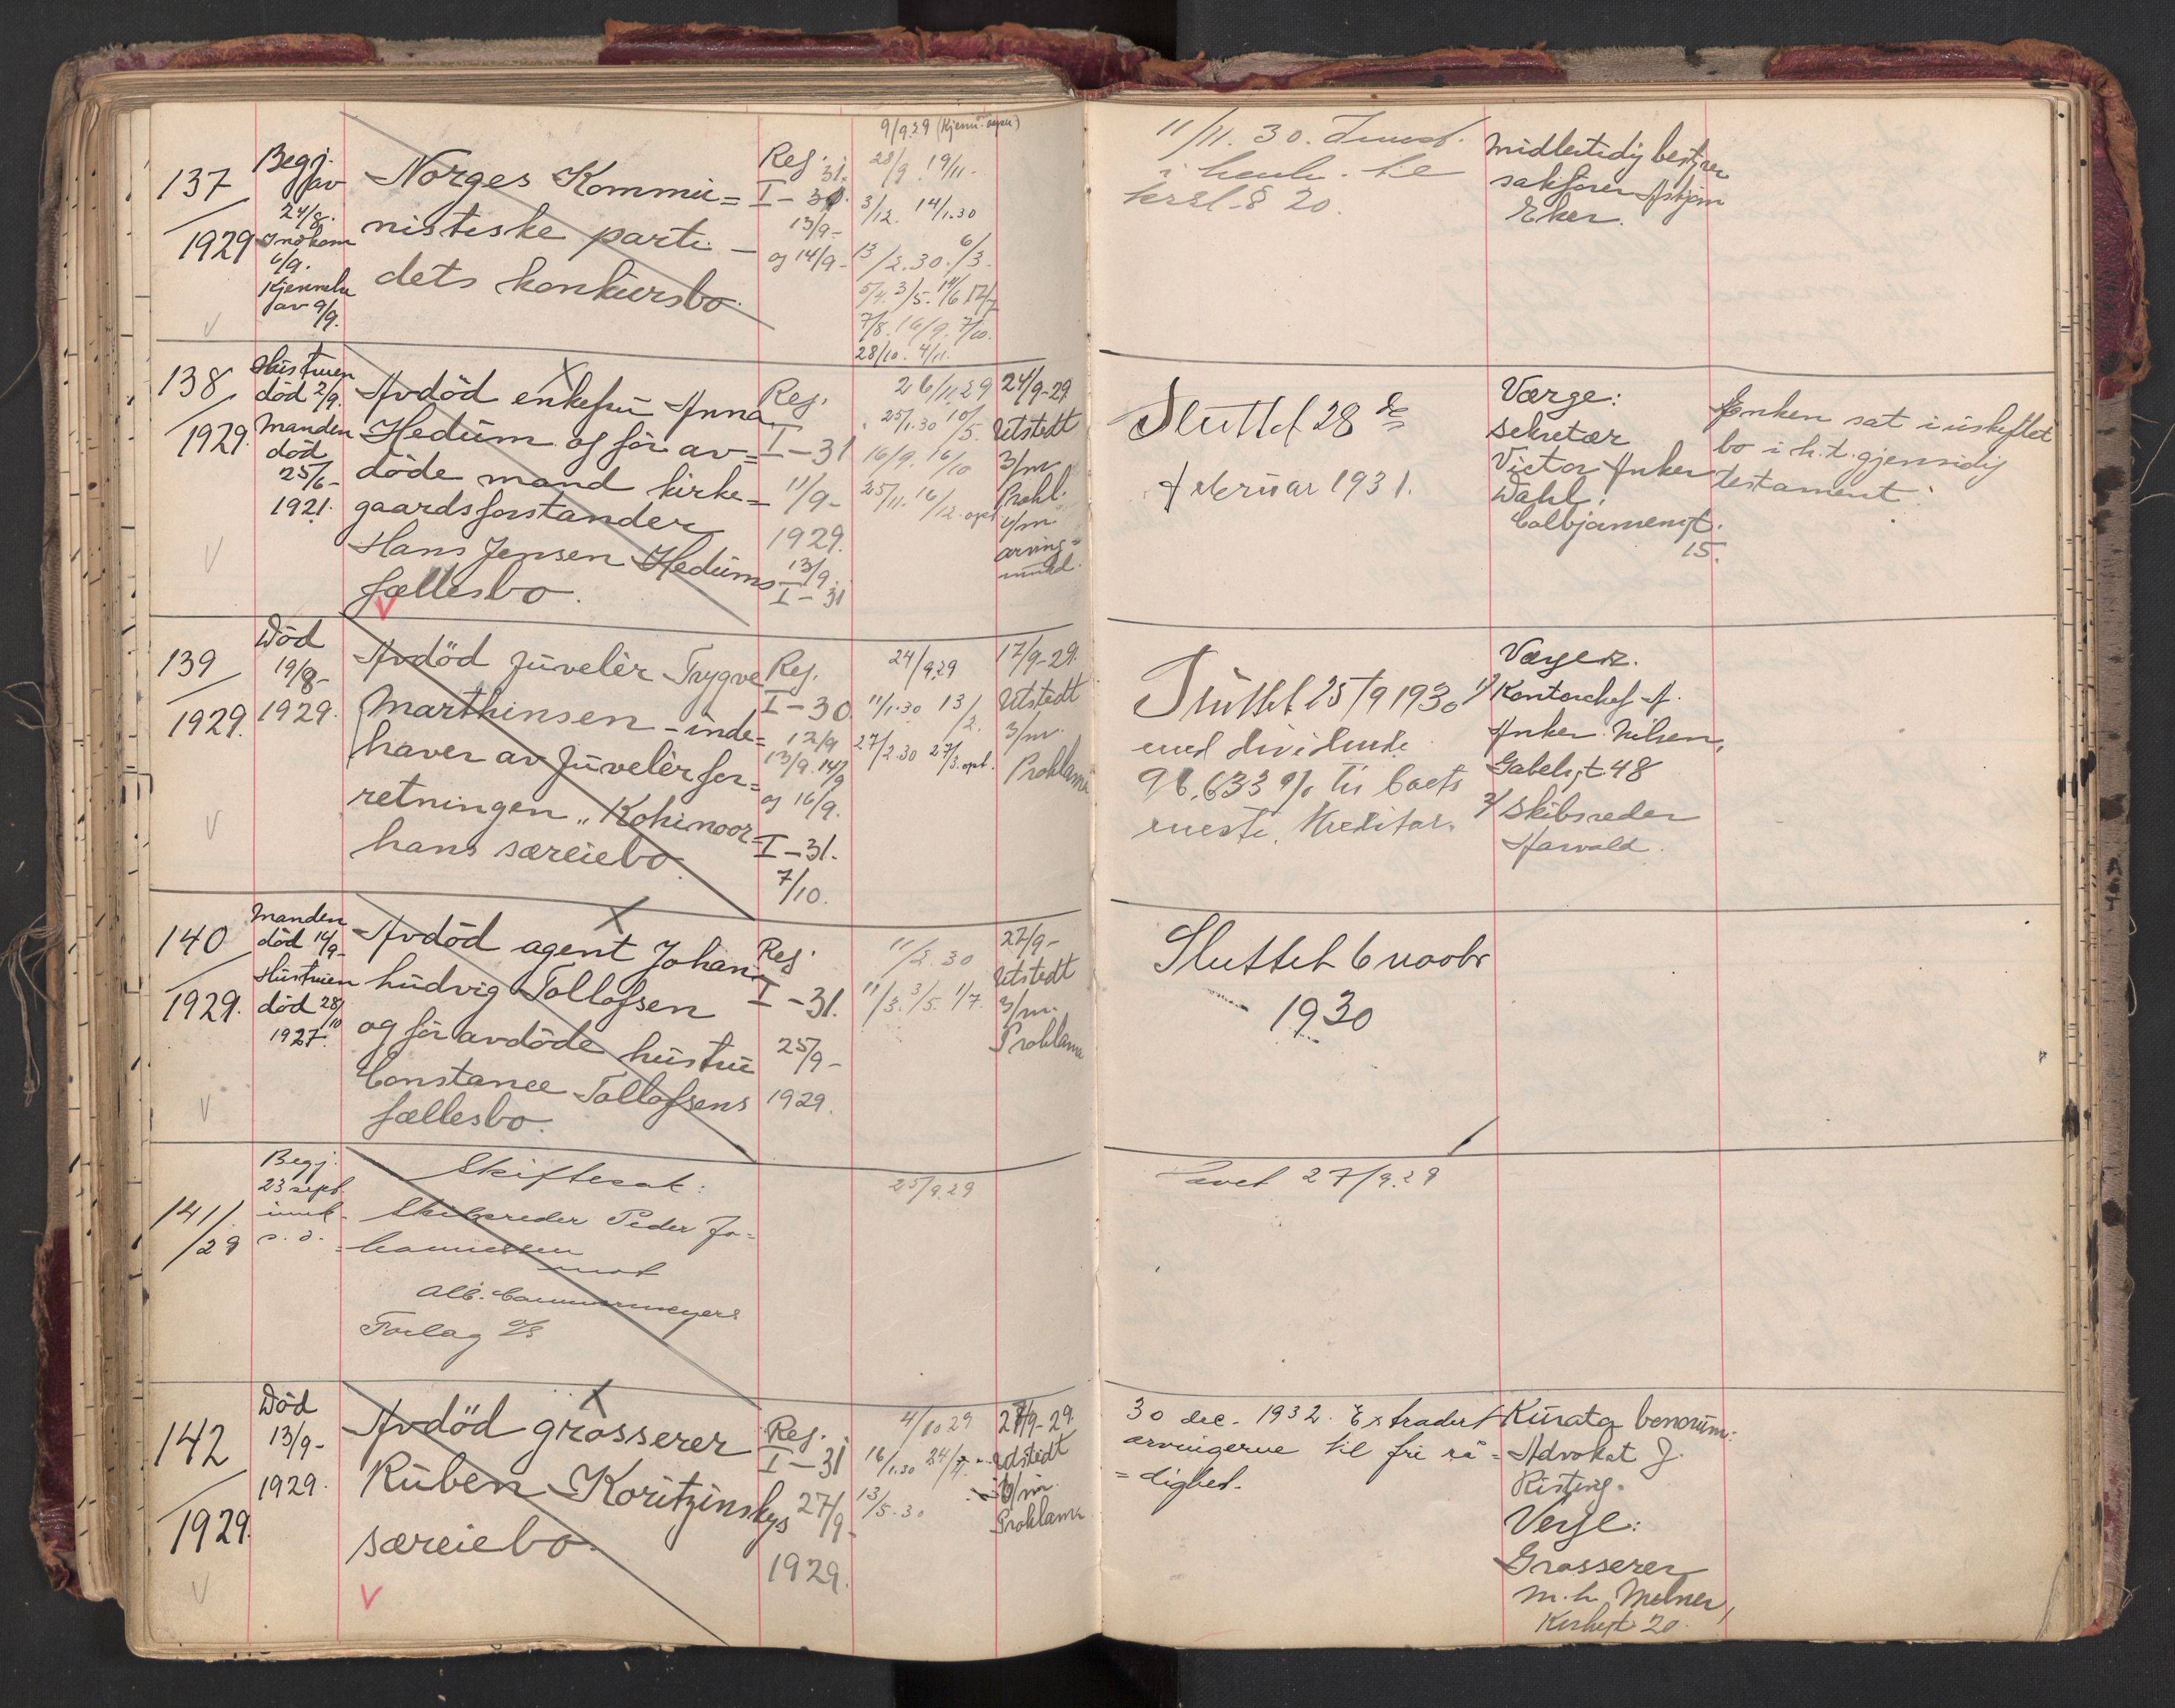 137
1929
Begj.
av
24/8.
Indkom
6/9.
Kjennelse
av 9/9.
Norges Kommu=
nistiske parti-
dets konkursbo.
Reg.
31.
I-30.
13/9-
og 14/9-
9/9.29
28/9. 19/11.
3/12. 14/1.30
13/2.30. 6/3.
5/4. 3/5. 14/6 12/7
7/8. 16/9. 7/10.
28/10. 4/11.
11/11. 30.
§ 20.
Midlertidig bestyrer
sakfører Asbjørn
Eker.
138
1929.
Hustruen
död 2/9.
Manden
död
25/6-
1921.
Avdöd enkefru Anna
Hedum og för av=
döde mand kirke=
gaardsforstander
Hans Jensen Hedums
fællesbo.
Reg.
I-31
11/9-
1929.
13/9.
I-31
26/11.29
25/1.30 10/5.
16/9. 16/10
25/11. 16/12. opt
24/9-29
Utstedt
3/m.
Prokl.
u/m
arving=
Sluttet 28de
februar 1931.
Værge:
Sekretær
Victor Anker
Dahl.
Colbjørnensgt.
15.
Enken sat i uskiftet
bo i h.t. gjensidig
testament.
139
1929.
Död
19/8-
1929.
Avdöd Juvelèr Trygve
Marthinsen - inde=
haver av Juvelèrfor=
retningen "Kohinoor"
hans særeiebo.
Reg.
I-30
12/9
13/9. 14/9
og 16/9.
I-31.
7/10.
24/9.29
11/1.30 13/2.
27/2.30 27/3. opt.
17/9-29.
Utstedt
3/m.
Proklama
Sluttet 25/9 1930
med dividende
96,633 % til boets
Kreditor.
Værger.
1/ Kontorchef A.
Anker Nilsen,
Gabelsgt. 48
2/ Skibsreder
Harvald.
140
1929.
Manden
död 14/9-
Hustruen
död 28/10
1927.
Avdöd agent Johan
Ludvig Tollofsen
og för avdöde hustru
Constance Tollofsens
fællesbo.
Reg.
I-31.
25/9-
1929.
11/2.30
11/3. 3/5. 1/7.
27/9-
Utstedt
3/m.
Proklama
Sluttet 6 novbr
1930
141/
/29
Begj.
23 sept.
innk.
s. d.
Skiftesak:
Skibsreder Peder Jo=
hannessen
mot
Alb. Cammermeyers
Forlag A/S
25/9.29
Hævet 27/9.29
142
1929.
Död
13/9-
1929.
Avdöd grosserer
Ruben Koritzinskys
særeiebo.
Reg.
I-31
27/9-
1929.
4/10 29
16/1.30 24/4.
13/5.30
27/9-29.
Udstedt
3/m.
Proklama
30 dec. 1932. Extradert
arvingerne til fri rå=
=dighet.
Kurator bonorum:
Advokat J.
Risting.
Verge:
Grosserer
M. L. Melner,
Kirkegt 20.